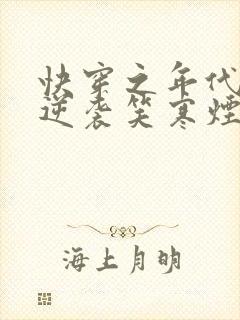 快穿之年代
逆袭笑寒烟
海上月明